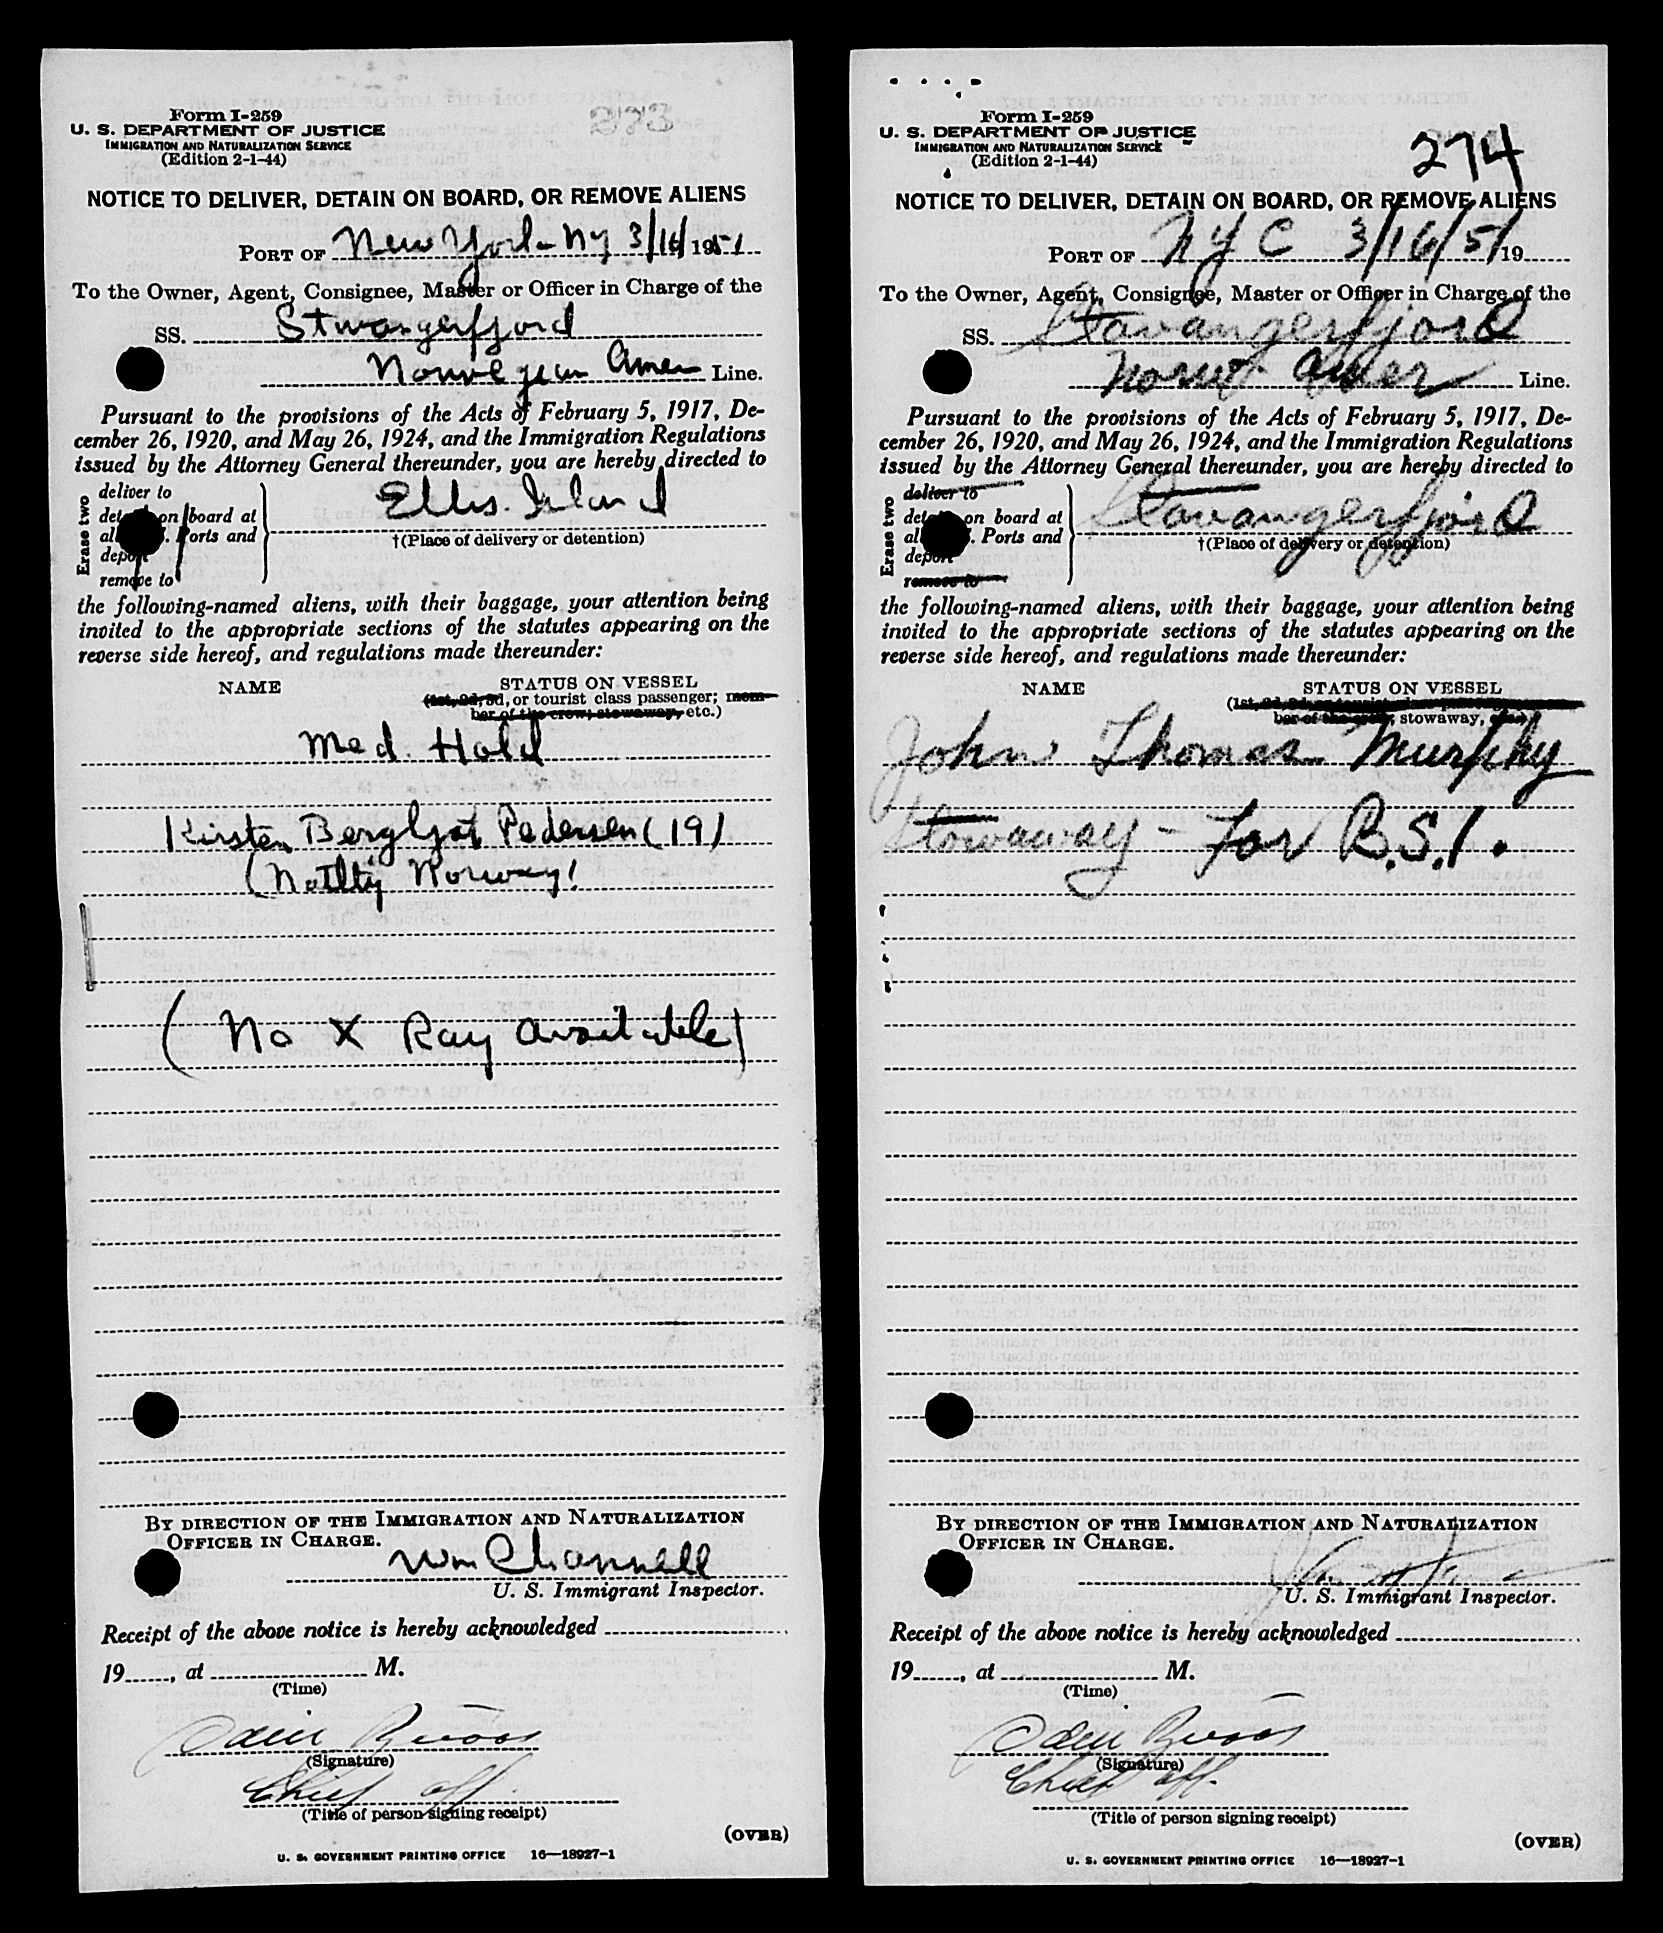 Form I-259
U. S. DEPARTMENT OF JUSTICE
IMMIGRATION AND NATURALIZATION SERVICE
(Edition 2-1-44)
273
NOTICE TO DELIVER, DETAIN ON BOARD, OR REMOVE ALIENS
PORT OF New York NY 3/16/1951
To the Owner, Agent, Consignee, Master or Officer in Charge of the
SS. Stwangerfjord
Norwegian Amer Line.
Pursuant to the provisions of the Acts of February 5, 1917, De-
cember 26, 1920, and May 26, 1924, and the Immigration Regulations
issued by the Attorney General thereunder, you are hereby directed to
Erase two
deliver to
on board at
Ports and
remove to
Ellis Island
†(Place of delivery or detention)
the following-named aliens, with their baggage, your attention being
invited to the appropriate sections of the statutes appearing on the
reverse side hereof, and regulations made thereunder:
NAME STATUS ON VESSEL
(1st, 2d, 3d, or tourist class passenger; mem-
ber of the crew; stowaway, etc.)
Med. Hold
Kirsten Bergljot Pedersen (19)
(Natlty Norway)
(No X Ray available)
BY DIRECTION OF THE IMMIGRATION AND NATURALIZATION
OFFICER IN CHARGE.
Wm Channell
U. S. Immigrant Inspector.
Receipt of the above notice is hereby acknowledged
19, at M.
(Time)
(Signature)
Chief off.
(Title of person signing receipt)
(OVER)
U. S. GOVERNMENT PRINTING OFFICE 16—18927-1
Form I-259
U. S. DEPARTMENT OF JUSTICE
IMMIGRATION AND NATURALIZATION SERVICE
(Edition 2-1-44)
274
NOTICE TO DELIVER, DETAIN ON BOARD, OR REMOVE ALIENS
PORT OF NYC 3/16/51 19
To the Owner, Agent, Consignee, Master or Officer in Charge of the
SS. Stavangerfjord
Norw Amer Line.
Pursuant to the provisions of the Acts of February 5, 1917, De-
cember 26, 1920, and May 26, 1924, and the Immigration Regulations
issued by the Attorney General thereunder, you are hereby directed to
Erase two
deliver to
on board at
Ports and
remove to
Stavangerfjord
†(Place of delivery or detention)
the following-named aliens, with their baggage, your attention being
invited to the appropriate sections of the statutes appearing on the
reverse side hereof, and regulations made thereunder:
NAME STATUS ON VESSEL
(1st, 2d, 3d, or tourist class passenger; mem-
ber of the crew; stowaway, etc.)
John Thomas Murphy
Stowaway - For B.S.I.
BY DIRECTION OF THE IMMIGRATION AND NATURALIZATION
OFFICER IN CHARGE.
U. S. Immigrant Inspector.
Receipt of the above notice is hereby acknowledged
19, at M.
(Time)
(Signature)
Chief off.
(Title of person signing receipt)
(OVER)
U. S. GOVERNMENT PRINTING OFFICE 16—18927-1